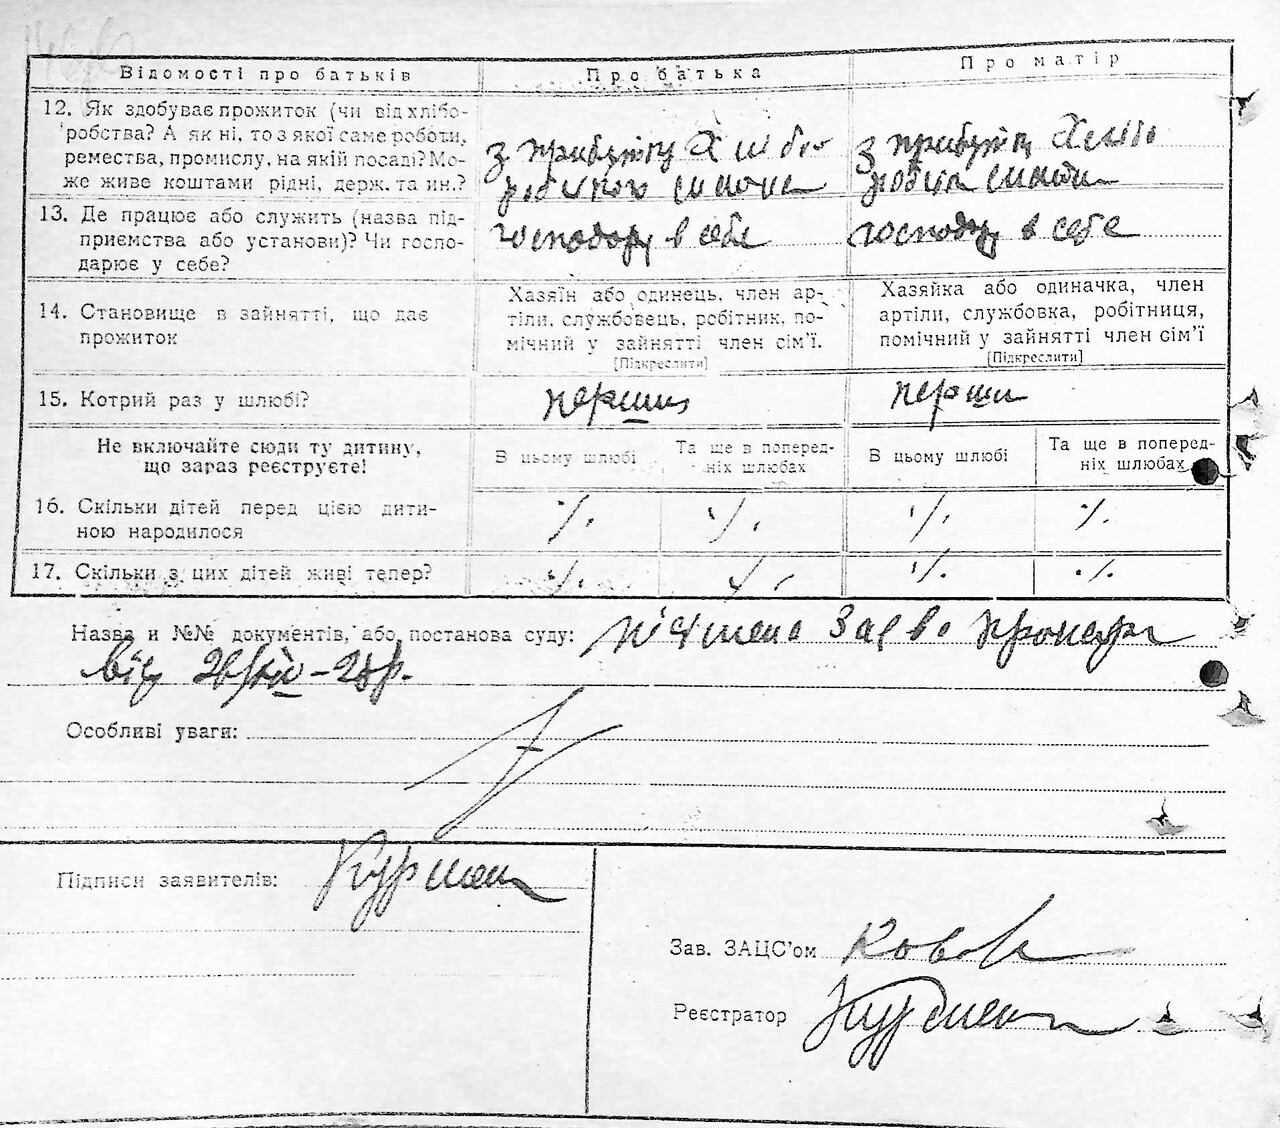 Відомості про батьків
Про батька
Про матір
12. Як здобуває прожиток (чи від хлібо-
робства? А як ні, то з якої саме роботи,
ремества, промислу, на якій посаді? Мо-
же живе коштами рідні, держ. та ин.?
з прибутку Хлібо
робства
з прибутку Хлібо
13. Де працює або служить (назва під-
приємства або установи)? Чи госпо-
дарює у себе?
господару в себе
господару в себе
14. Становище в зайнятті, що дає
прожиток
Хазяїн або одинець, член ар-
тіли, службовець, робітник, по-
мічний у зайнятті член сім'ї.
[Підкреслити]
Хазяйка або одиначка, член
артіли, службовка, робітниця,
помічний у зайнятті член сім'ї
[Підкреслити]
15. Котрий раз у шлюбі?
перший
перши
Не включайте сюди ту дитину,
що зараз реєструєте!
В цьому шлюбі
Та ще в поперед-
ніх шлюбах
В цьому шлюбі
Та ще в поперед-
ніх шлюбах
16. Скільки дітей перед цією дити-
ною народилося
·/. ·/. ·/. ·/.
17. Скільки з цих дітей живі тепер?
·/. ·/. ·/. ·/.
Назва и №№ документів, або постанова суду:
від
Особливі уваги:
Підписи заявителів:
Зав. ЗАЦС'ом
Реєстратор